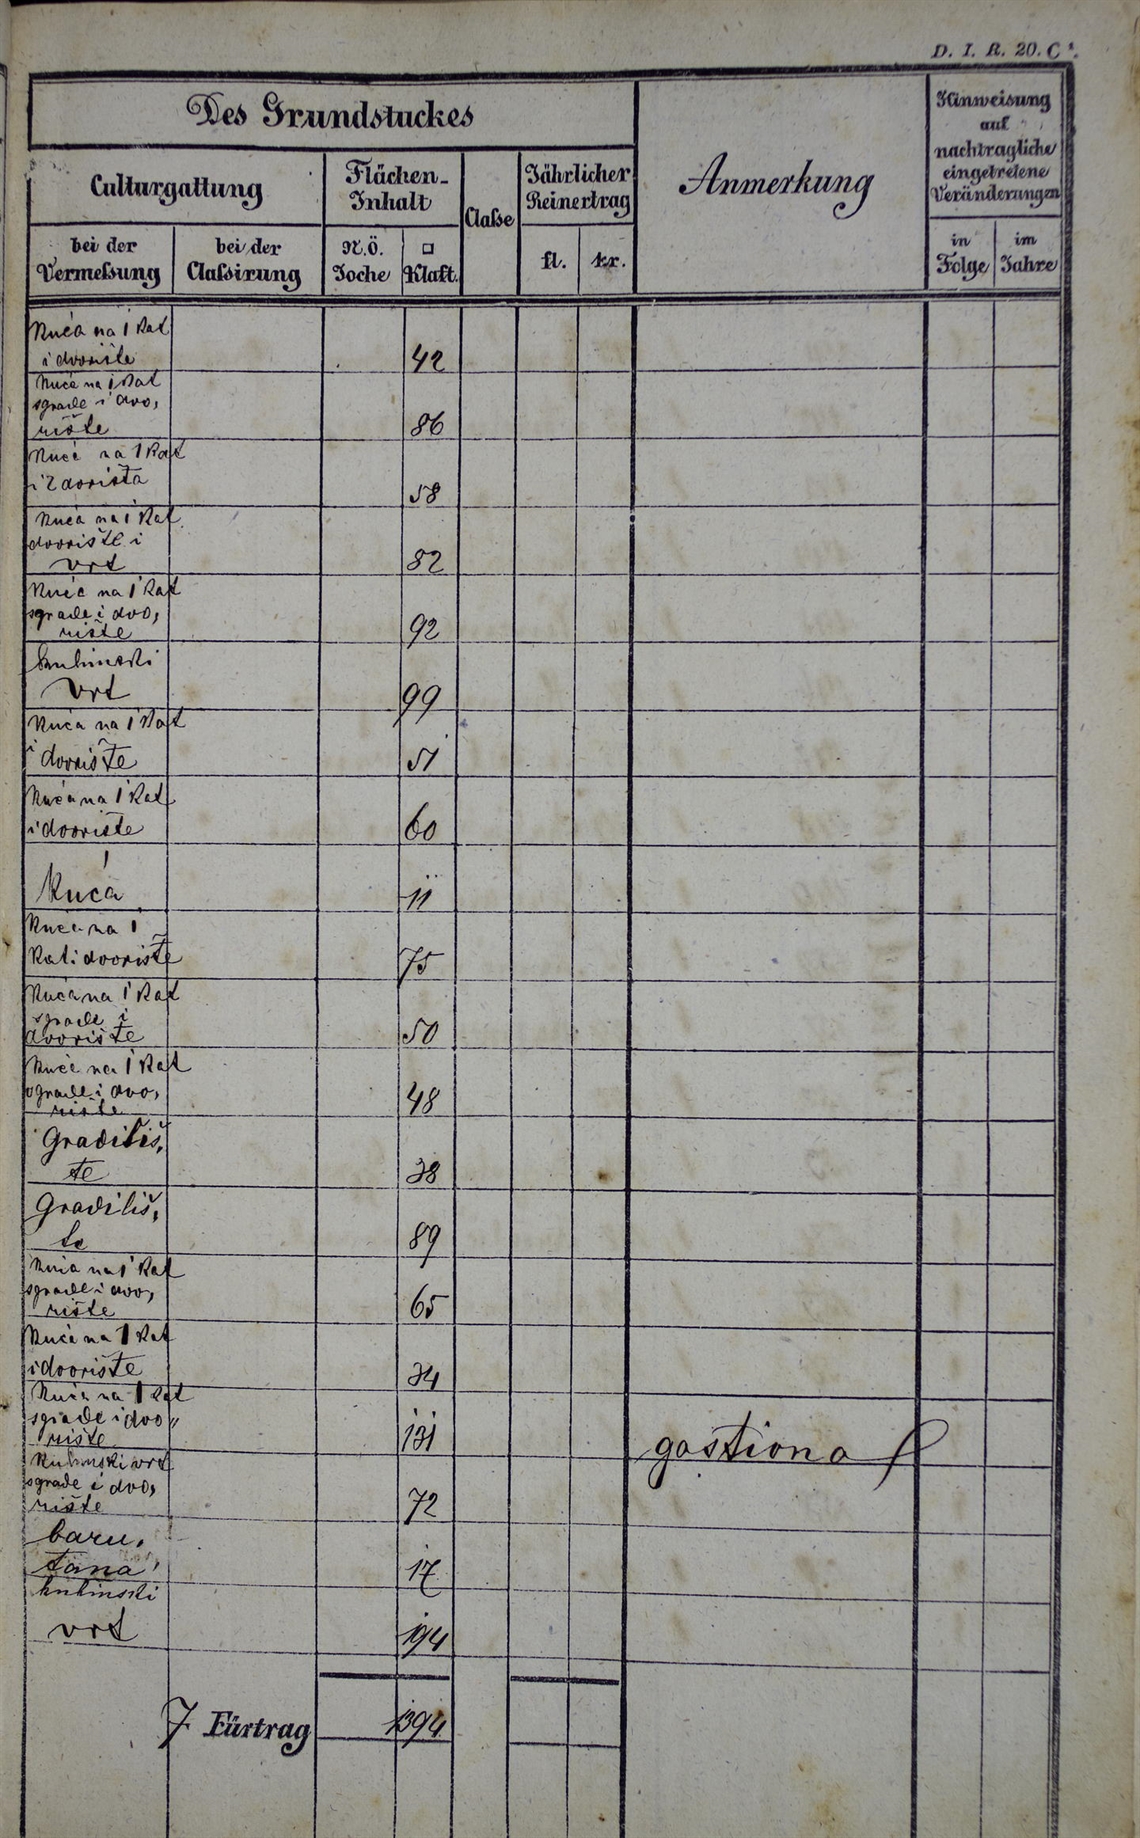 D. I. R. 20. C¹.
Des Grundstuckes
Anmerkung
Hinweisung
auf
nachtragliche
eingetretene
Veränderungen
Culturgattung
Flächen-
Inhalt
Claſse
Jährlicher
Reinertrag
bei der
Vermeſsung
bei der
Claſsirung
N.Ö.
Joche
□
Klaft.
fl.
kr.
in
Folge
im
Jahre
Kuća na 1 Kat
i dvorište 42
Kuća na 1 Kat
sgrade i dvo,
rište 86
Kuća na 1 Kat
i 2 dorišta 58
Kuća na 1 Kat
dvorište i
vrt 82
Kuća na 1 Kat
sgrade i dvo,
rište 92
kuhinski
vrt 99
Kuća na 1 Kat
i dvorište 51
Kuća na 1 Kat
i dvorište 60
Kuća 11
Kuća na 1
Kat i dvorište 75
Kuća na 1 Kat
sgrade i
dvorište 50
Kuća na 1 Kat
sgrade i dvo,
rište 48
Gradiliš,
te 38
Gradiliš,
te 89
Kuća na 1 Kat
sgrade i dvo,
rište 65
Kuća na 1 Kat
i dvorište 34
Kuća na 1 Kat
sgrade i dvo„
rište 131 gostiona
Kuhinski vrt
sgrade i dvo,
rište 72
baru,
tana 17
kuhinski
vrt 194
7 Fürtrag 1394